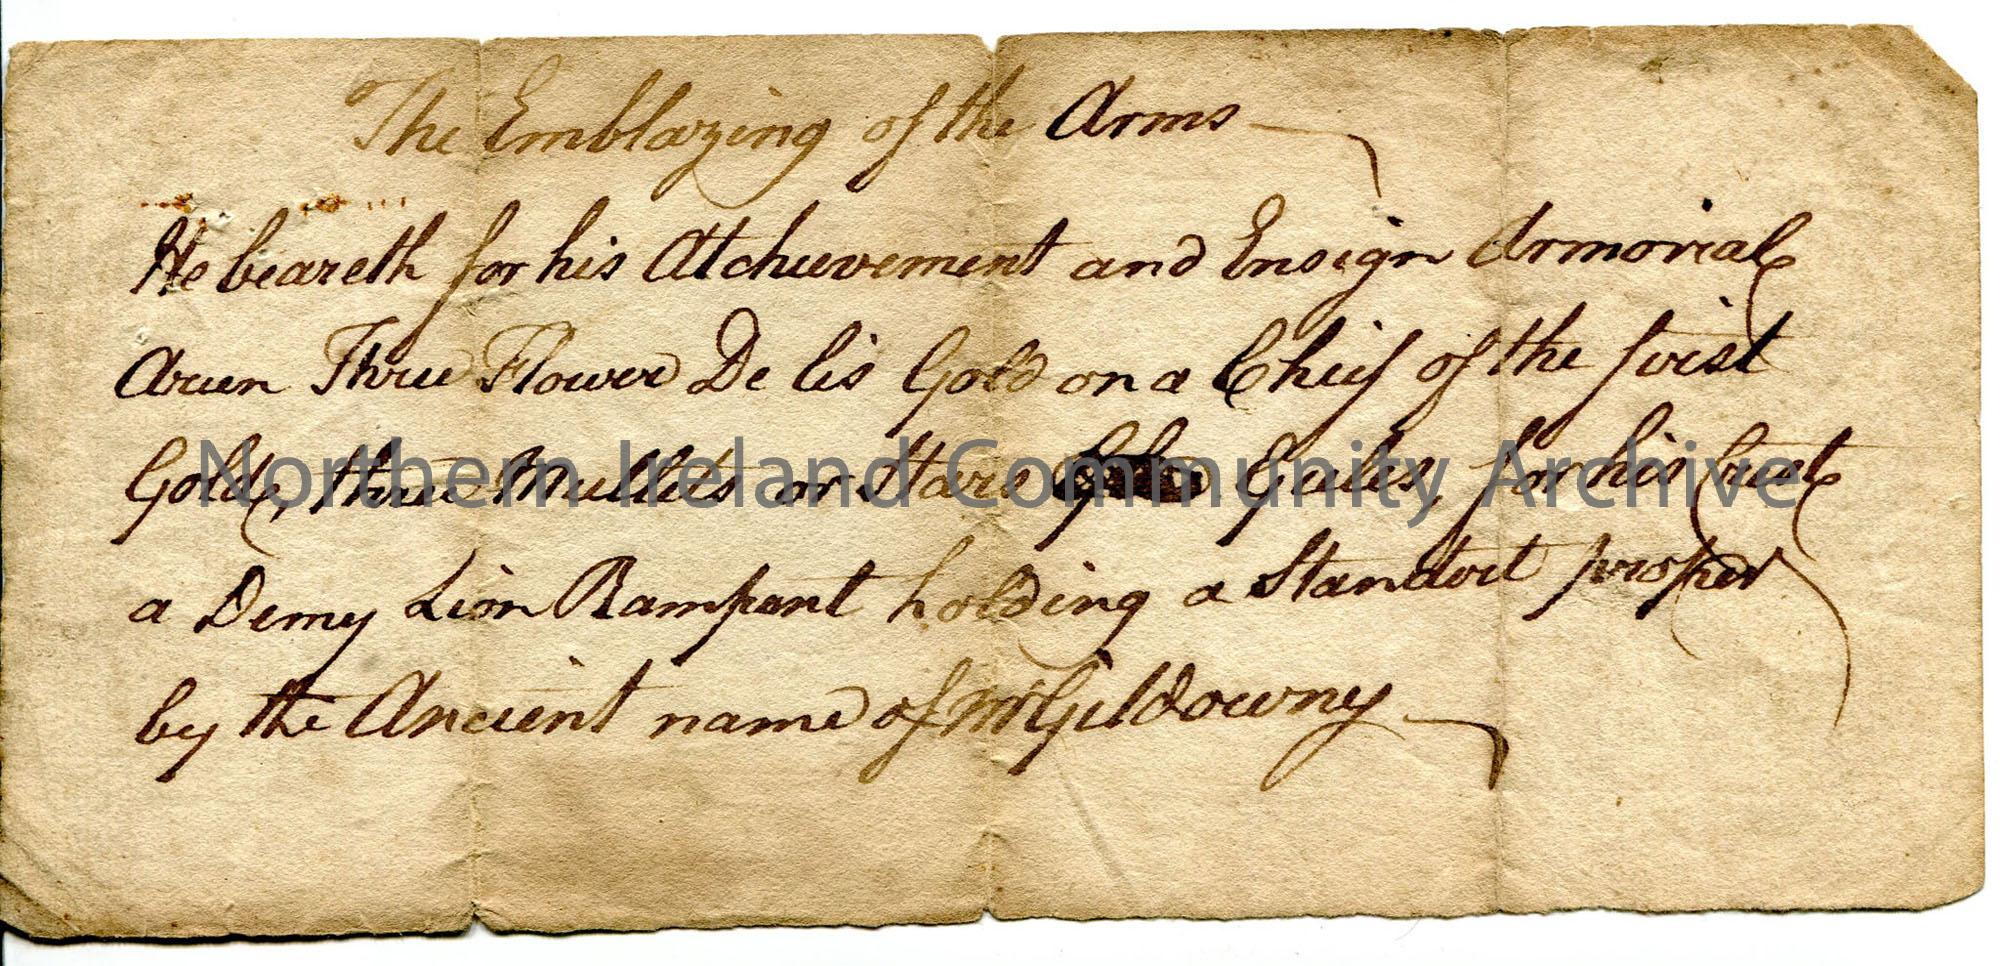 The Emblazing of the Arms
He beareth for his Atchievement and Ensign Armorial
Three Flower De lis Gold on a Chief of the first
Gold, three Mullets or Stars Gules, for his Crest
a Demy Lion Rampant holding a Standort proper
by the Ancient name of McGildowny
Northern Ireland Community Archive